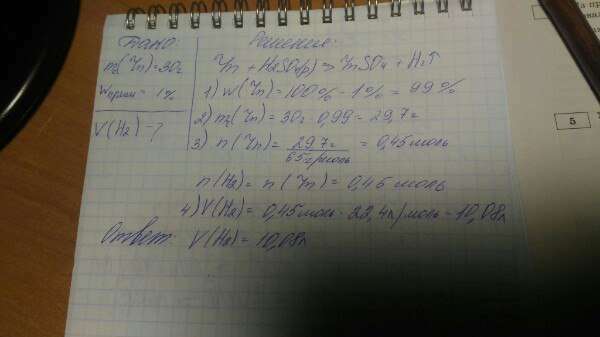 Дано:
m(Zn)=30г
wприм = 1%
V(H2) - ?
Решение:
Zn + H2SO4(p) > ZnSO4 + H2↑
1) w(Zn) = 100% - 1% = 99%
2) m(Zn) = 30г · 0,99 = 29,7г
3) n(Zn) = 29,7г / 65г/моль = 0,45моль
n(H2) = n(Zn) = 0,45 моль
4) V(H2) = 0,45моль · 22,4л/моль = 10,08л
Ответ: V(H2) = 10,08л
5